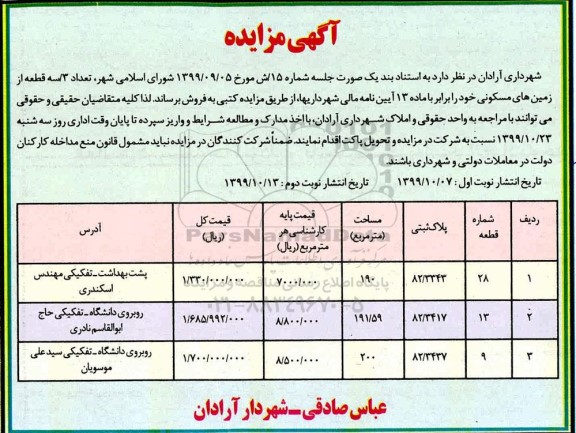 آگهی مزایده
شهرداری آرادان در نظر دارد به استناد بند یک صورت جلسه شماره ۱۵/ش مورخ ۱۳۹۹/۰۹/۰۵ شورای اسلامی شهر، تعداد ۳/سه قطعه از
زمین های مسکونی خود را برابر با ماده ۱۳ آیین نامه مالی شهرداریها، از طریق مزایده کتبی به فروش برساند. لذا کلیه متقاضیان حقیقی و حقوقی
می توانند با مراجعه به واحد حقوقی و املاک شهرداری آرادان، با اخذ مدارک و مطالعه شرایط و واریز سپرده تا پایان وقت اداری روز سه شنبه
۱۳۹۹/۱۰/۲۳ نسبت به شرکت در مزایده و تحویل پاکت اقدام نمایند. ضمناً شرکت کنندگان در مزایده نباید مشمول قانون منع مداخله کارکنان
دولت در معاملات دولتی و شهرداری باشند.
تاریخ انتشار نوبت اول: ۱۳۹۹/۱۰/۰۷ تاریخ انتشار نوبت دوم: ۱۳۹۹/۱۰/۱۳
ردیف شماره قطعه پلاک ثبتی مساحت (مترمربع) قیمت پایه کارشناسی هر مترمربع (ریال) قیمت کل (ریال) آدرس
۱ ۲۸ ۸۲/۳۳۴۳ ۱۹۰ ۷۰۰۰/۰۰۰ ۱/۳۳۰/۰۰۰/۰۰۰ پشت بهداشت - تفکیکی مهندس اسکندری
۲ ۱۳ ۸۲/۳۴۱۷ ۱۹۱/۵۹ ۸/۸۰۰/۰۰۰ ۱/۶۸۵/۹۹۲/۰۰۰ روبروی دانشگاه - تفکیکی حاج ابوالقاسم نادری
۳ ۹ ۸۲/۳۴۳۷ ۲۰۰ ۸/۵۰۰/۰۰۰ ۱/۷۰۰/۰۰۰/۰۰۰ روبروی دانشگاه - تفکیکی سید علی موسویان
ParsNamadData
پایگاه اطلاع رسانی مناقصه و مزایده
۰۲۱-۸۸۳۴۹۶۷۰-۵
عباس صادقی - شهردار آرادان